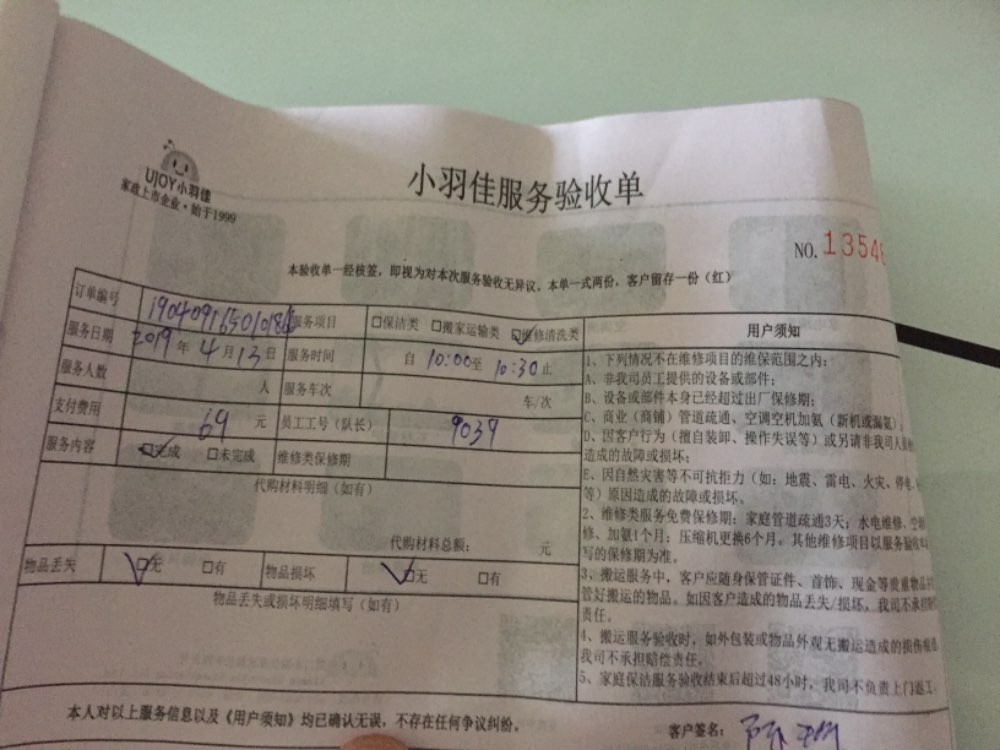 UJOY小羽佳
家政上市企业·始于1999
小羽佳服务验收单
NO. 13548
本验收单一经核签，即视为对本次服务验收无异议。本单一式两份，客户留存一份（红）
订单编号 服务项目 □保洁类 □搬家运输类 ☑维修清洗类
服务日期 2019年4月13日 服务时间 自10:00至10:30止
服务人数 人 服务车次 车/次
支付费用 69元 员工工号（队长） 9039
服务内容 ☑完成 □未完成 维修类保修期
代购材料明细（如有）
代购材料总额： 元
物品丢失 ☑无 □有 物品损坏 ☑无 □有
物品丢失或损坏明细填写（如有）
用户须知
1、下列情况不在维修项目的维保范围之内：
A、非我司员工提供的设备或部件；
B、设备或部件本身已经超过出厂保修期；
C、商业（商铺）管道疏通、空调空机加氨（新机或漏氨）；
D、因客户行为（擅自装卸、操作失误等）或另请非我司人员
造成的故障或损坏；
E、因自然灾害等不可抗拒力（如：地震、雷电、火灾、停电
等）原因造成的故障或损坏。
2、维修类服务免费保修期：家庭管道疏通3天；水电维修、空调
修、加氨1个月；压缩机更换6个月。其他维修项目以服务验收
写的保修期为准。
3、搬运服务中，客户应随身保管证件、首饰、现金等贵重物品
管好搬运的物品。如因客户造成的物品丢失/损坏，我司不承担
责任。
4、搬运服务验收时，如外包装或物品外观无搬运造成的损伤
我司不承担赔偿责任。
5、家庭保洁服务验收结束后超过48小时，我司不负责上门返工
本人对以上服务信息以及《用户须知》均已确认无误，不存在任何争议纠纷。
客户签名：